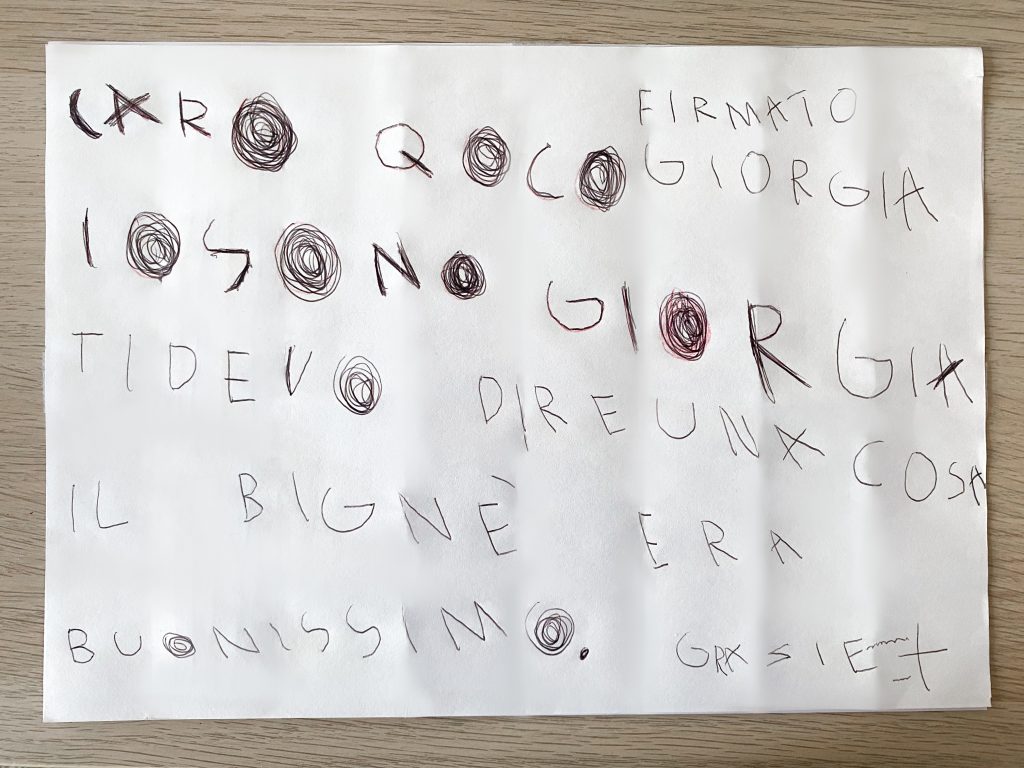 CARO QOCO
IO SONO GIORGIA
TI DEVO DIRE UNA COSA
IL BIGNÈ ERA
BUONISSIMO.
GRASIE
FIRMATO
GIORGIA